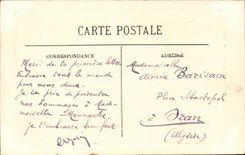 CARTE POSTALE
CORRESPONDANCE
Merci de ta première lettre
Embrasse tout le monde
pour nous deux.
Je te prie de présenter
nos hommages à Made-
moiselle
Je t'embrasse bien fort
ADRESSE
Mademoiselle
Aimée Barisain
Place Sébastopol
Oran
(Algérie)